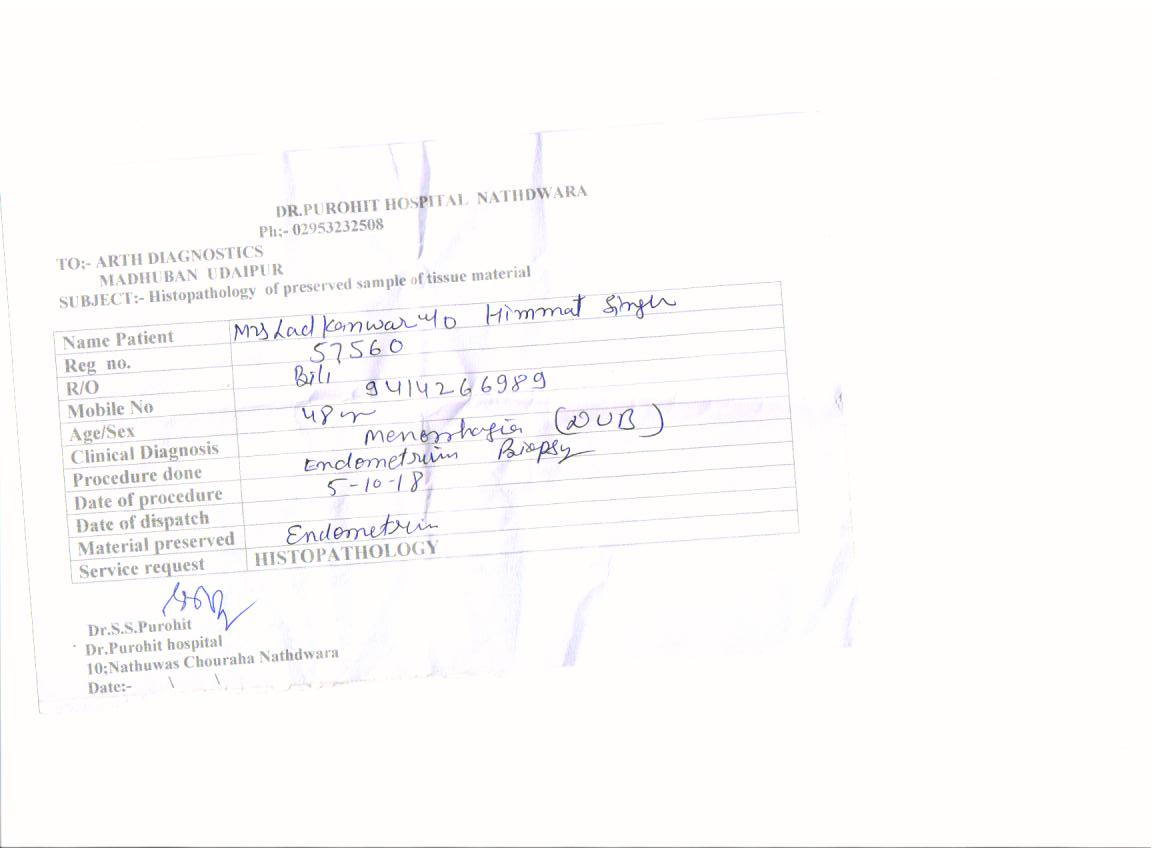 DR.PUROHIT HOSPITAL NATHDWARA
Ph:- 02953232508
TO:- ARTH DIAGNOSTICS
MADHUBAN UDAIPUR
SUBJECT:- Histopathology of preserved sample of tissue material
Name Patient Mrs Lad Kanwar w/o Himmat Singh
Reg no. 57560
R/O Bili
Mobile No 9414266989
Age/Sex 48 yr
Clinical Diagnosis Menorrhagia (DUB)
Procedure done Endometrium Biopsy
Date of procedure 5-10-18
Date of dispatch
Material preserved Endometrium
Service request HISTOPATHOLOGY
Dr.S.S.Purohit
Dr.Purohit hospital
10;Nathuwas Chouraha Nathdwara
Date:- \ \